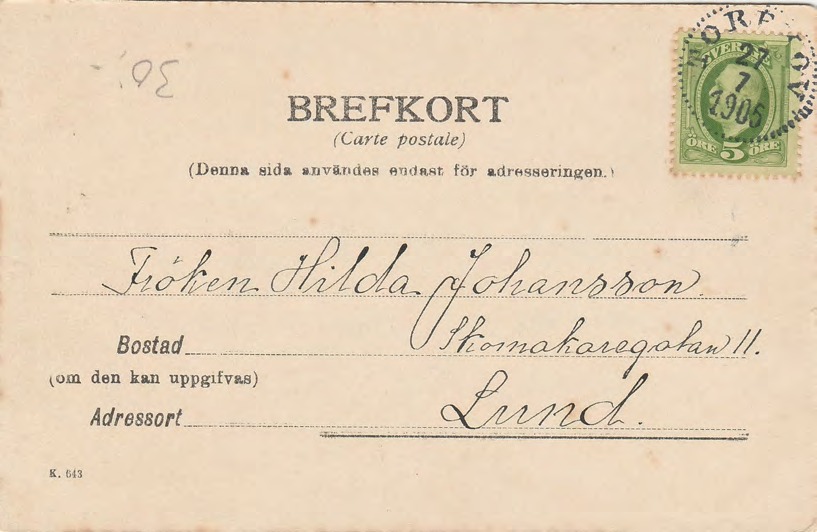 30.
BREFKORT
(Carte postale)
(Denna sida användes endast för adresseringen.)
SVERIGE
27
7
1905
ÖRE 5 ÖRE
Fröken Hilda Johansson.
Bostad Skomakaregatan 11.
(om den kan uppgifvas)
Adressort Lund.
K. 643